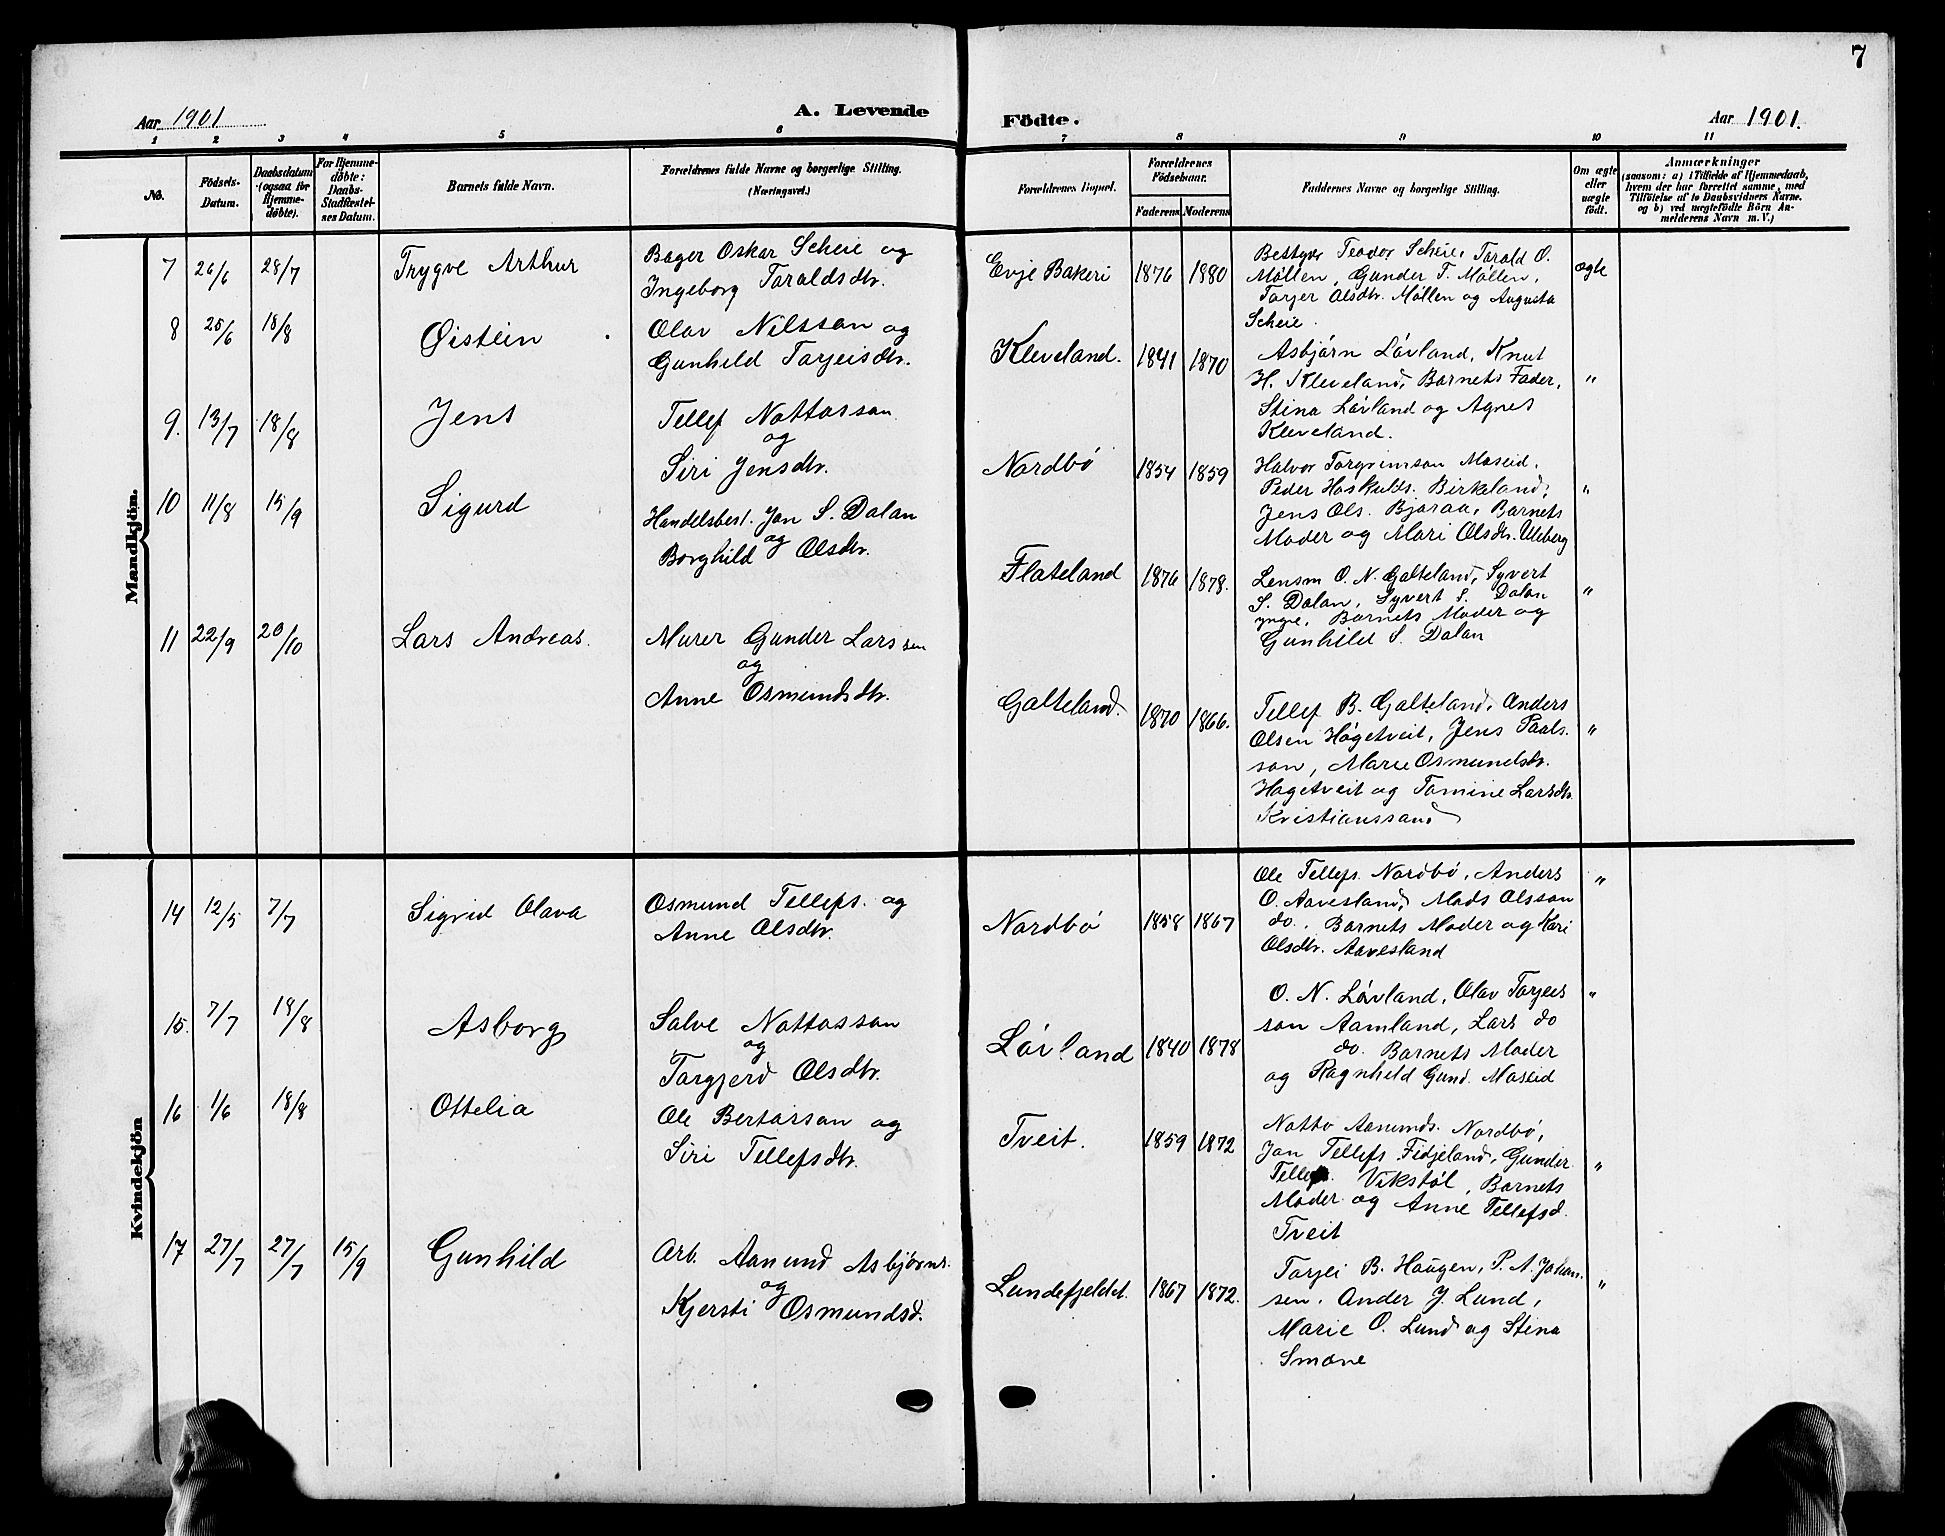 7
Aar 1901
A. Levende
Födte.
Aar 1901.
1 2 3 4 5 6 7 8 9 10 11
No.
Födsels-Datum.
Daabsdatum (ogsaa for Hjemmedøbte).
For Hjemmedøbte: Daabs-Stadfæstelses Datum.
Barnets fulde Navn.
Forældrenes fulde Navne og borgerlige Stilling. (Næringsvei.)
Forældrenes Bopæl.
Forældrenes Födselsaar.
Faderens Moderens
Faddernes Navne og borgerlige Stilling.
Om ægte eller uægte født.
Anmærkninger
(saasom: a) i Tilfælde af Hjemmedaab, hvem der har forrettet samme, med Tilføielse af to Daabsvidners Navne, og b) ved uægtefödte Börn Anmelderens Navn m. V.)
Mandkjön.
7 26/6 28/7 Trygve Arthur
Bager Oskar Scheie og
Ingeborg Taraldsdtr.
Evje Bakeri 1876 1880
Bestyr. Teodor Scheie, Tarald O.
Møllen, Gunder T. Møllen,
Torjer Olsdtr. Møllen og Augusta
Scheie.
ægte
8 25/6 18/8 Øistein
Olav Nilsson og
Gunhild Tarjeisdtr.
Kleveland. 1841 1870
Asbjørn Løvland, Knut
H. Kleveland, Barnets Fader,
Stina Løvland og Agnes
Kleveland.
"
9. 13/7 18/8 Jens
Tellef Nottosson
og
Siri Jensdtr.
Nordbø 1854 1859
Halvor Torgrimson Moseid,
Peder Hoskulds. Birkeland,
Jens Ols. Bjoraa, Barnets
Moder og Mari Olsdtr. Uleberg
"
10 11/8 15/9 Sigurd
Handelsbest. Jon S. Dalan
og
Borghild Olsdtr.
Flateland 1876 1878.
Lensm O. N. Galteland, Syvert
S. Dalan, Syvert S. Dalan
yngre, Barnets Moder og
Gunhild S. Dalan
"
11 22/9 20/10 Lars Andreas.
Murer Gunder Larssen
og
Anne Osmundsdtr.
Galteland. 1870 1866.
Tellef B. Galteland, Anders
Olsen Høgetveit, Jens Paals-
son, Marie Osmundsdtr.
Høgetveit og Tomine Larsdtr.
Kristianssand
"
Kvindekjön
14 12/5 7/7 Sigrid Olava
Osmund Tellefs. og
Anne Olsdtr.
Nordbø 1858 1867
Ole Tellefs. Nordbø, Anders
O. Aavesland, Mads Olsson
do, Barnets Moder og Kari
Olsdtr. Aavesland
"
15. 7/7 18/8 Asborg
Salve Nottosson
og
Torgjerd Olsdtr.
Løvland 1840 1878
O. N. Løvland, Olav Torjeis
son Aamland, Lars do
do. Barnets Moder
og Ragnhild Gund. Moseid
"
16 1/6 18/8 Ottelia
Ole Bertorson og
Siri Tellefsdtr.
Tveit. 1859 1872
Notto Aanunds. Nordbø,
Jon Tellefs Fidjeland, Gunder
Tellefs. Vikstøl, Barnets
Moder og Anne Tellefsd.
Tveit
"
17 27/7 27/7 15/9 Gunhild
Arb. Aanund Asbjørns.
og
Kjersti Osmundsd.
Lundefjeldet. 1867 1872.
Torjei B. Haugen, P. A. Johan-
sen, Ander J. Lund,
Marie O. Lund og Stina
Smone
"